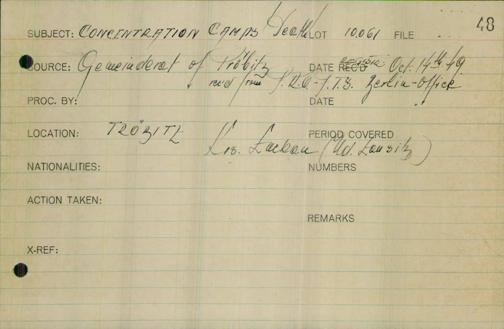 48
SUBJECT: CONCENTRATION CAMPS Death LOT 10061 FILE
SOURCE: Gemeinderat of Tröbitz DATE REC'D Oct. 14th 49
rec'd from I.R.O-I.T.S. Berlin-Office
PROC. BY: DATE
LOCATION: TRÖBITZ PERIOD COVERED
Krs. Luckau (Nd. Lausitz)
NATIONALITIES: NUMBERS
ACTION TAKEN:
REMARKS
X-REF: